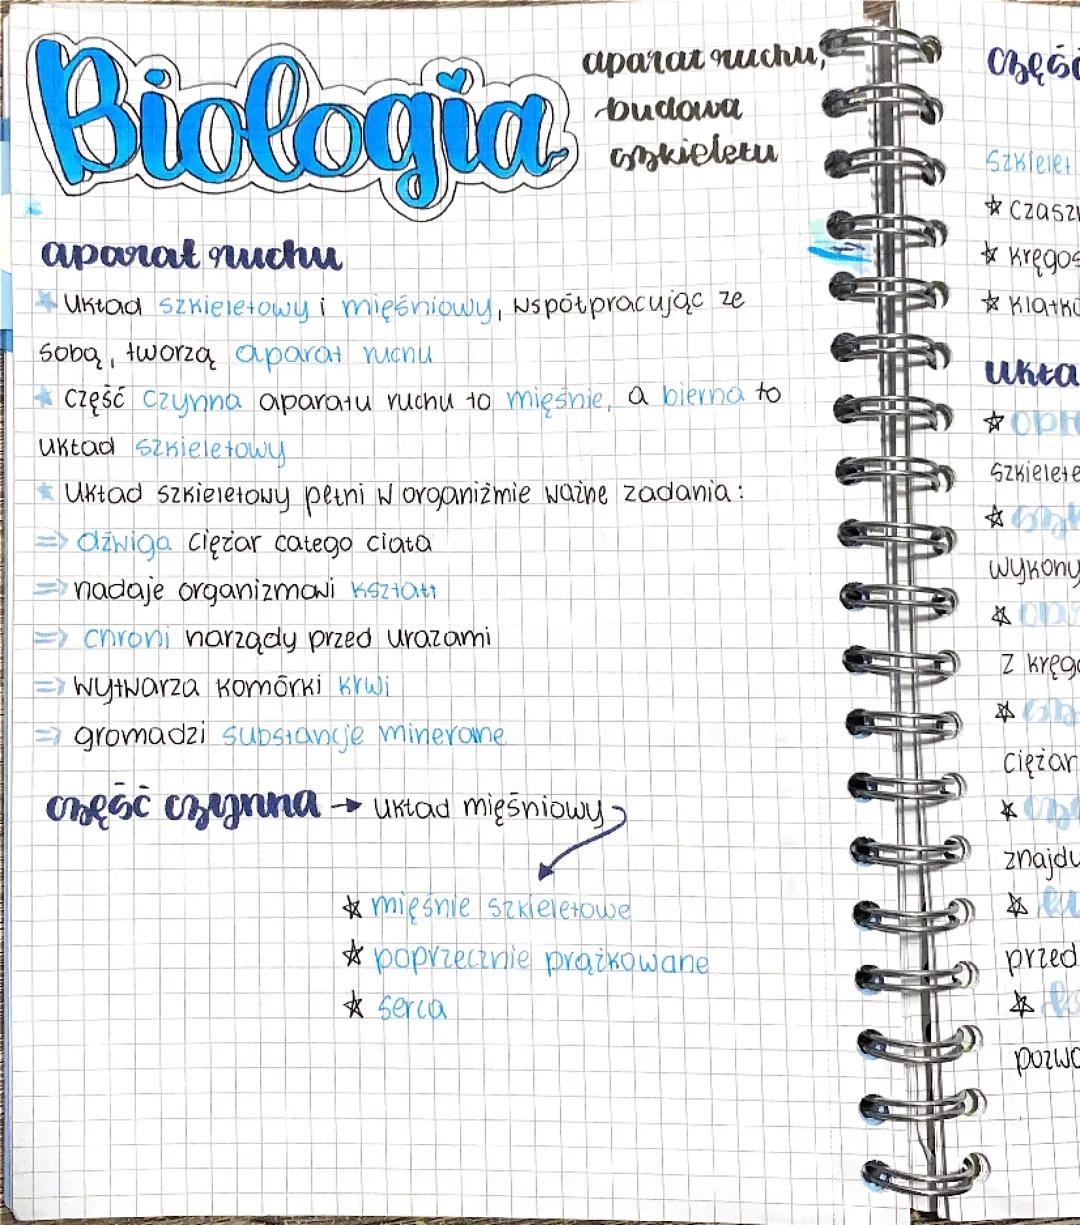 Biologia
aparat ruchu,
budowa
szkieletu
aparat ruchu
Układ szkieletowy i mięśniowy, współpracując ze
sobą, tworzą aparat ruchu
część czynna aparatu ruchu to mięśnie, a bierna to
układ szkieletowy
Układ szkieletowy pełni w organiźmie ważne zadania:
=> dźwiga ciężar całego ciała
=> nadaje organizmowi kształt
=> chroni narządy przed urazami
=> wytwarza komórki krwi
=> gromadzi substancje mineralne
część czynna → układ mięśniowy
mięśnie szkieletowe
poprzecznie prążkowane
serca
część
szkielet
czasz
kręgos
klatk
ukła
szkielete
wykony
z kręg
ciężar
znajdu
przed
pozwo